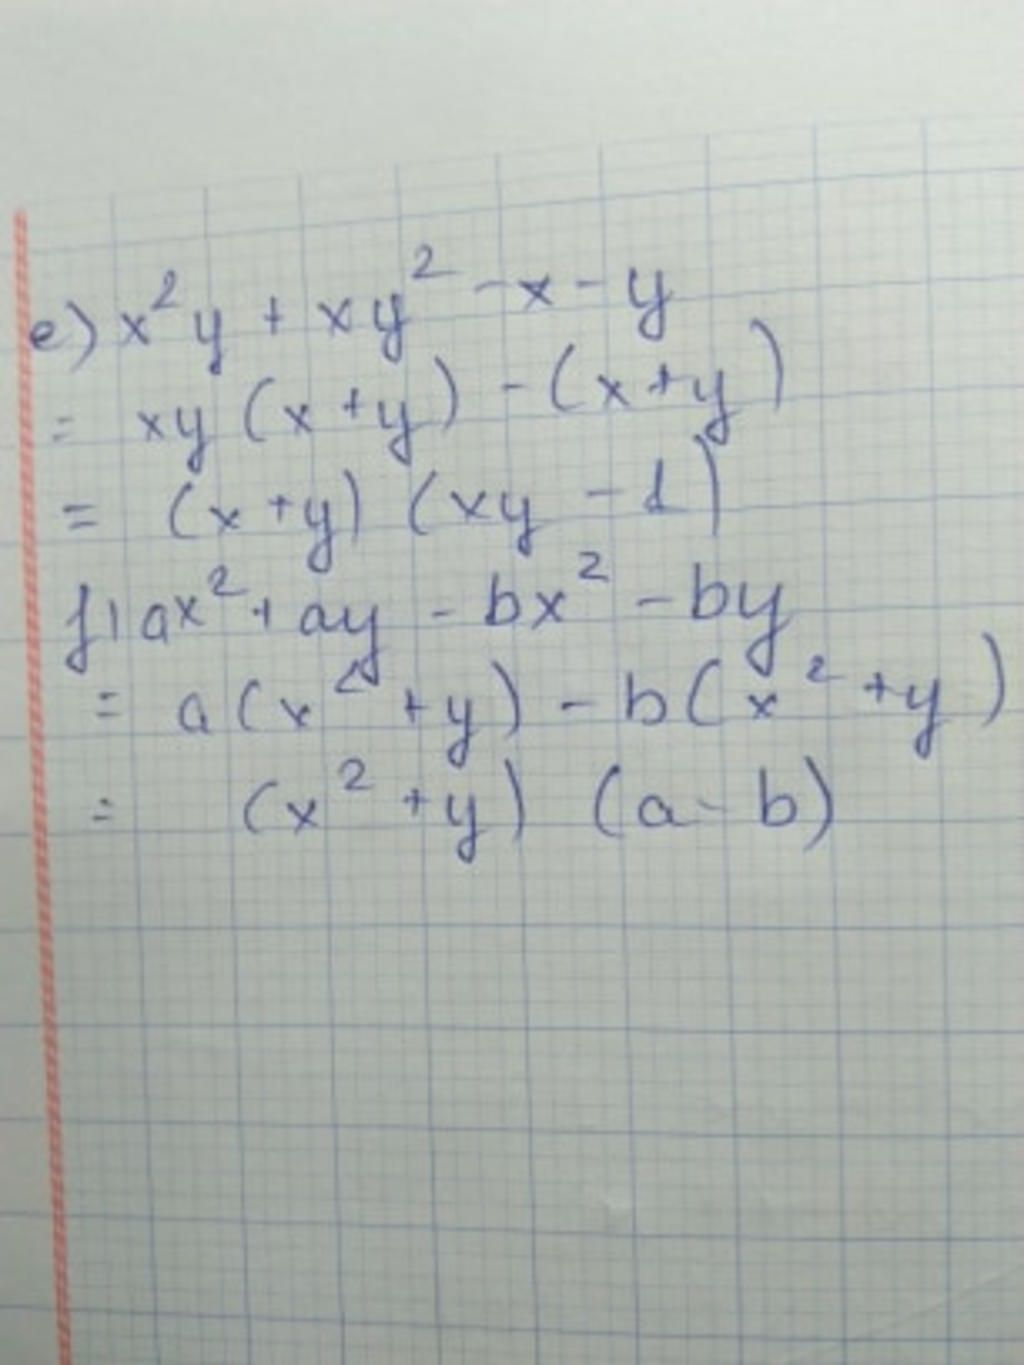 e) x²y + xy² - x - y
= xy (x + y) - (x + y)
= (x + y) (xy - 1)
f) ax² + ay - bx² - by
= a(x² + y) - b(x² + y)
= (x² + y) (a - b)